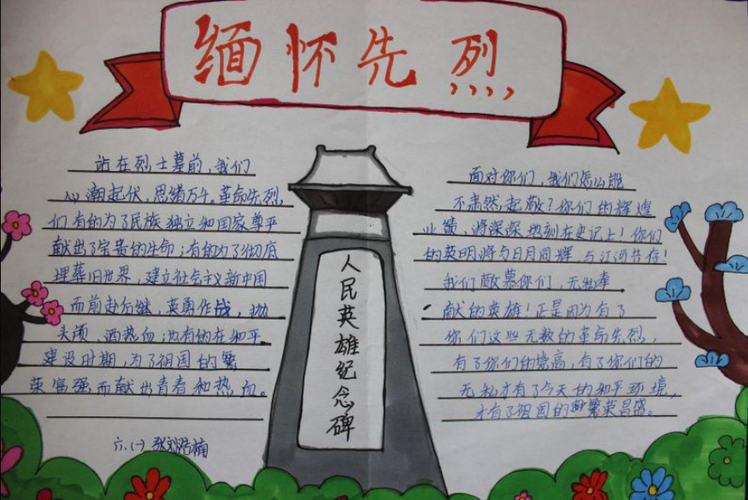 缅怀先烈
站在烈士墓前，我们
心潮起伏，思绪万千。革命先烈，
们有的为了民族独立和国家尊严
献出了宝贵的生命；有的为了彻底
埋葬旧世界，建立社会主义新中国
而前赴后继，英勇作战，抛
头颅，洒热血；也有的在和平
建设时期，为了祖国的繁
荣富强而献出青春和热血。
六.(一)
人民英雄纪念碑
面对你们，我们怎么能
不肃然起敬？你们的辉煌
业绩，将深深地刻在史记上！你们
的英明将与日月同辉，与江河共存！
我们敬慕你们，无私奉
献的英雄！正是因为有了
你们这些无数的革命先烈，
有了你们的崇高，有了你们的
无私才有了今天的和平环境，
才有了祖国的繁荣昌盛。